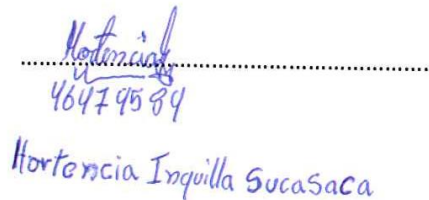 Hortencia
46479584
Hortencia Inquilla Sucasaca